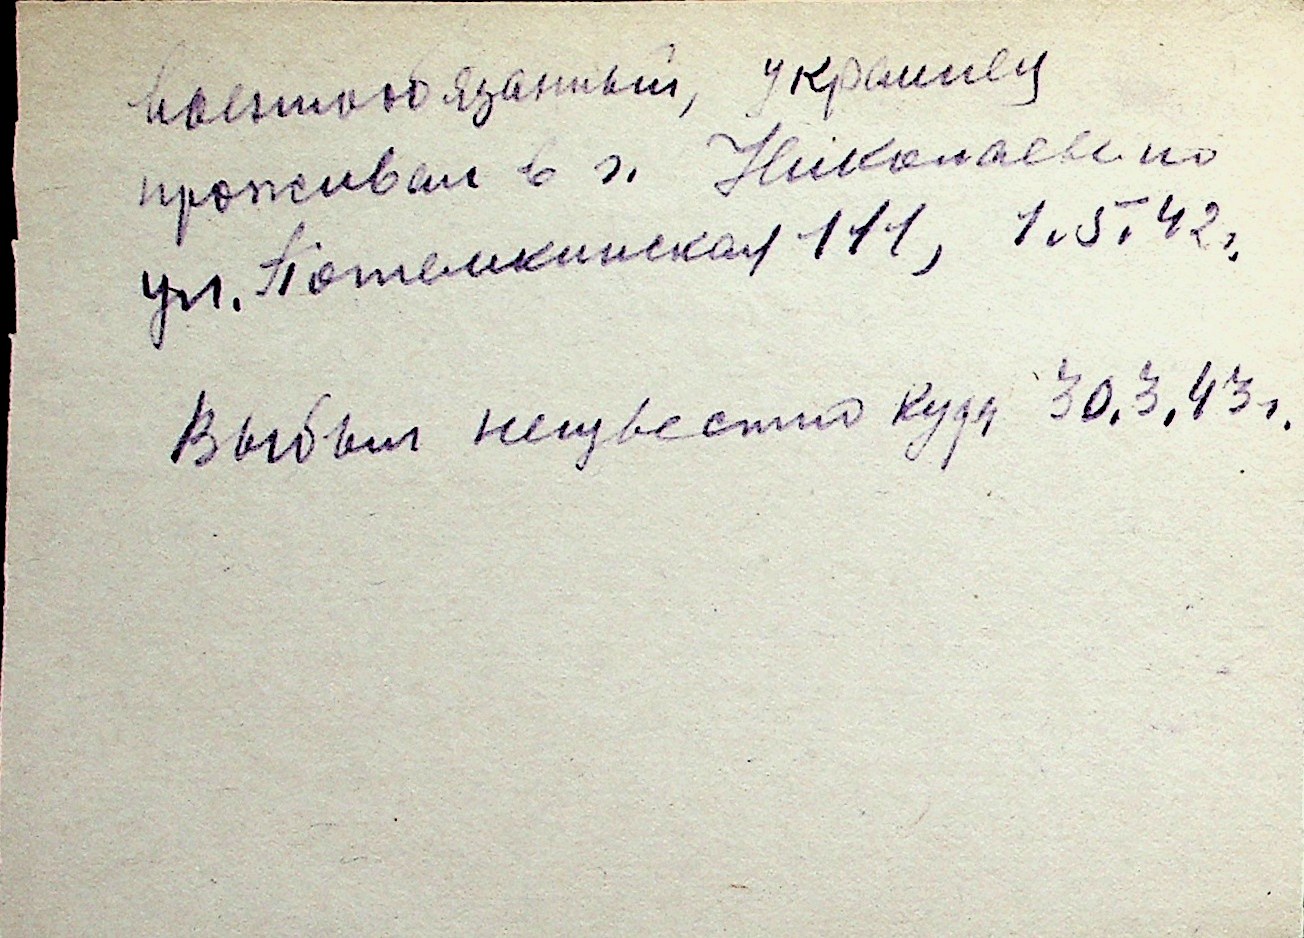 военнообязанный, украинец
проживал в г. Николаеве по
ул. Потемкинская 111, 1.5.42г.
Выбыл неизвестно куда 30.3.43г.